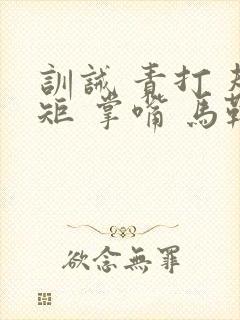 訓誡 責打 規
矩 掌嘴 馬鞭
欲念無罪